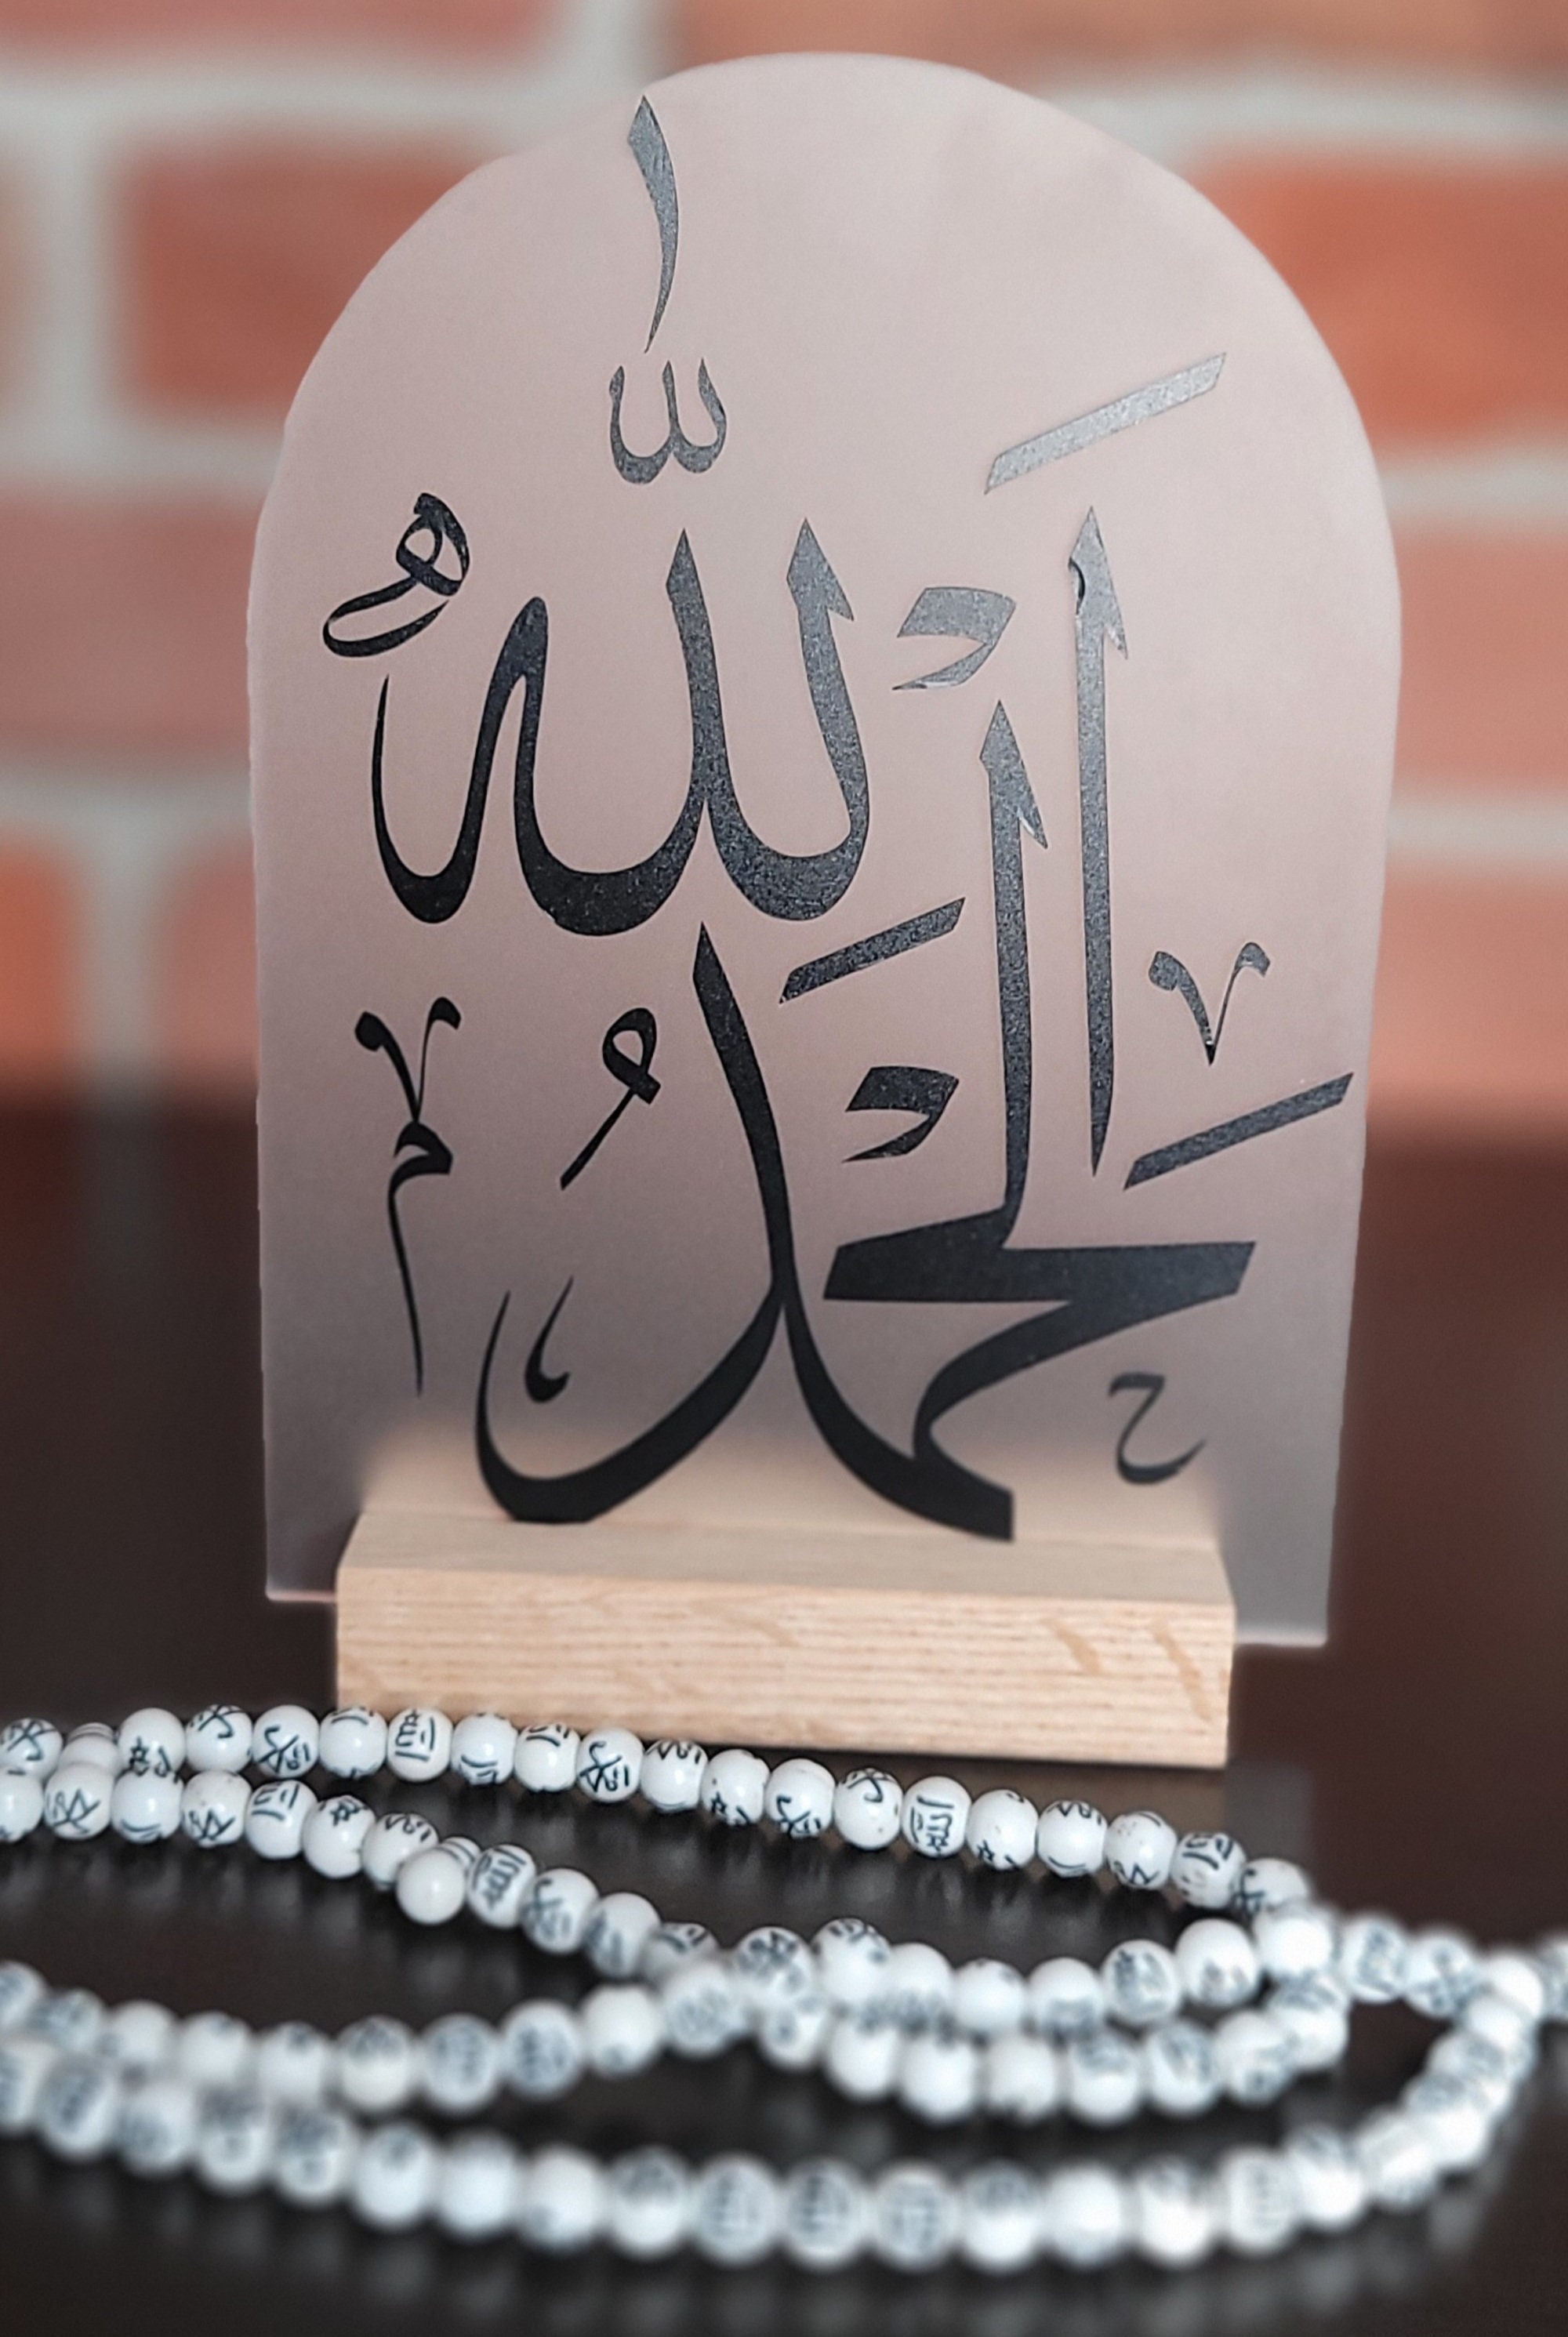 اَلْحَمْدُ
لِلّٰهِ